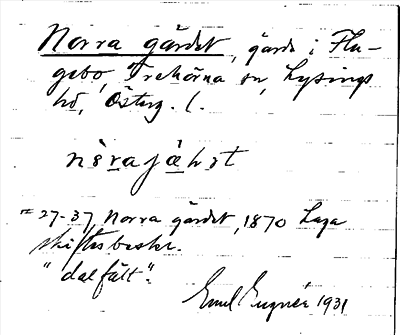 Norra gärdet, gärde i Flu-
gebo, Trehörna sn, Lysings
hd, Österg. l.
nèrajæ̀ḷət
= 27-37 Norra gärdet, 1870 Laga
skiftesbeskr.
"dalfält".
Emil Eugnér 1931